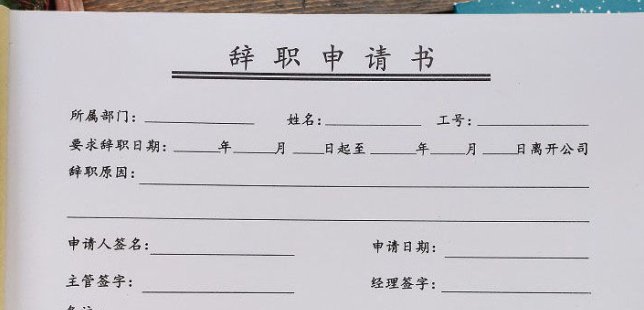 辞职申请书
所属部门： 姓名： 工号：
要求辞职日期： 年 月 日起至 年 月 日离开公司
辞职原因：
申请人签名： 申请日期：
主管签字： 经理签字：